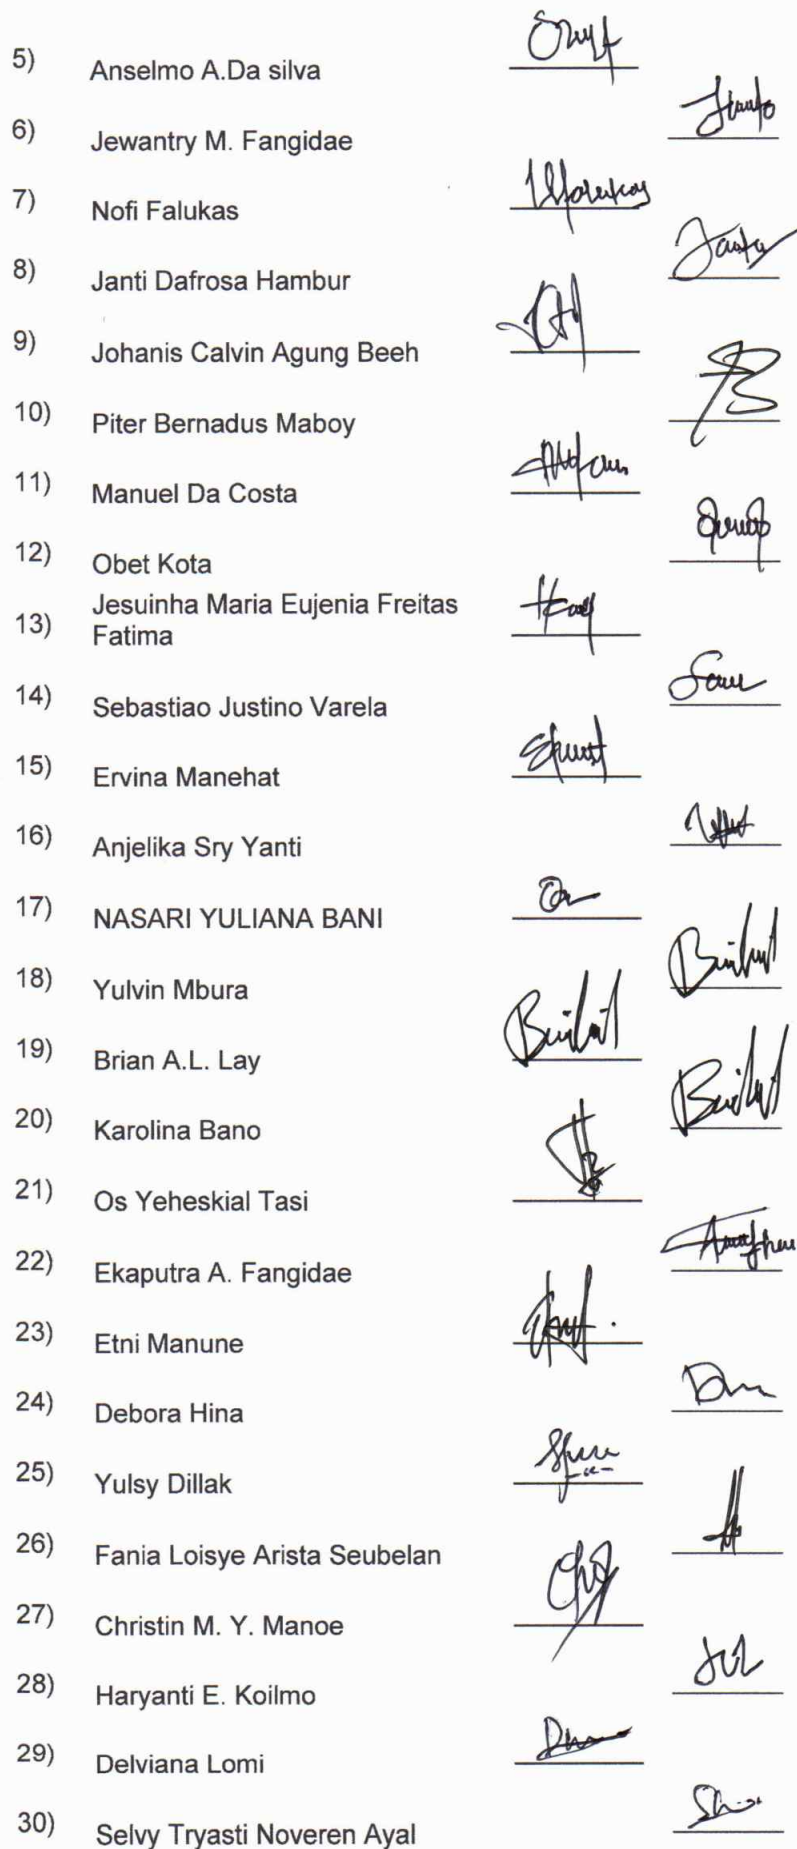 5) Anselmo A.Da silva
6) Jewantry M. Fangidae
7) Nofi Falukas
8) Janti Dafrosa Hambur
9) Johanis Calvin Agung Beeh
10) Piter Bernadus Maboy
11) Manuel Da Costa
12) Obet Kota
13) Jesuinha Maria Eujenia Freitas
Fatima
14) Sebastiao Justino Varela
15) Ervina Manehat
16) Anjelika Sry Yanti
17) NASARI YULIANA BANI
18) Yulvin Mbura
19) Brian A.L. Lay
20) Karolina Bano
21) Os Yeheskial Tasi
22) Ekaputra A. Fangidae
23) Etni Manune
24) Debora Hina
25) Yulsy Dillak
26) Fania Loisye Arista Seubelan
27) Christin M. Y. Manoe
28) Haryanti E. Koilmo
29) Delviana Lomi
30) Selvy Tryasti Noveren Ayal